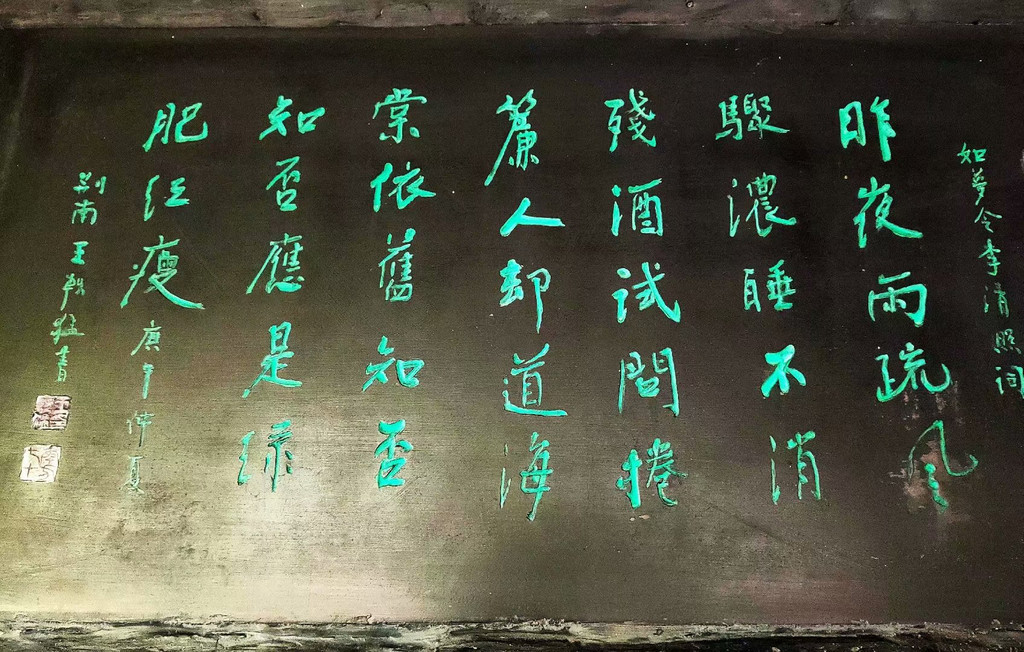 如夢令李清照词
昨夜雨疏风
驟濃睡不消
殘酒試問捲
簾人却道海
棠依舊知否
知否應是綠
肥红瘦庚午仲夏
荆南王